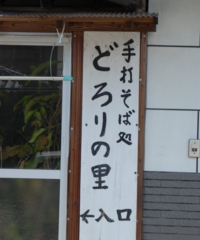 手打そば処
どろりの里
←入口